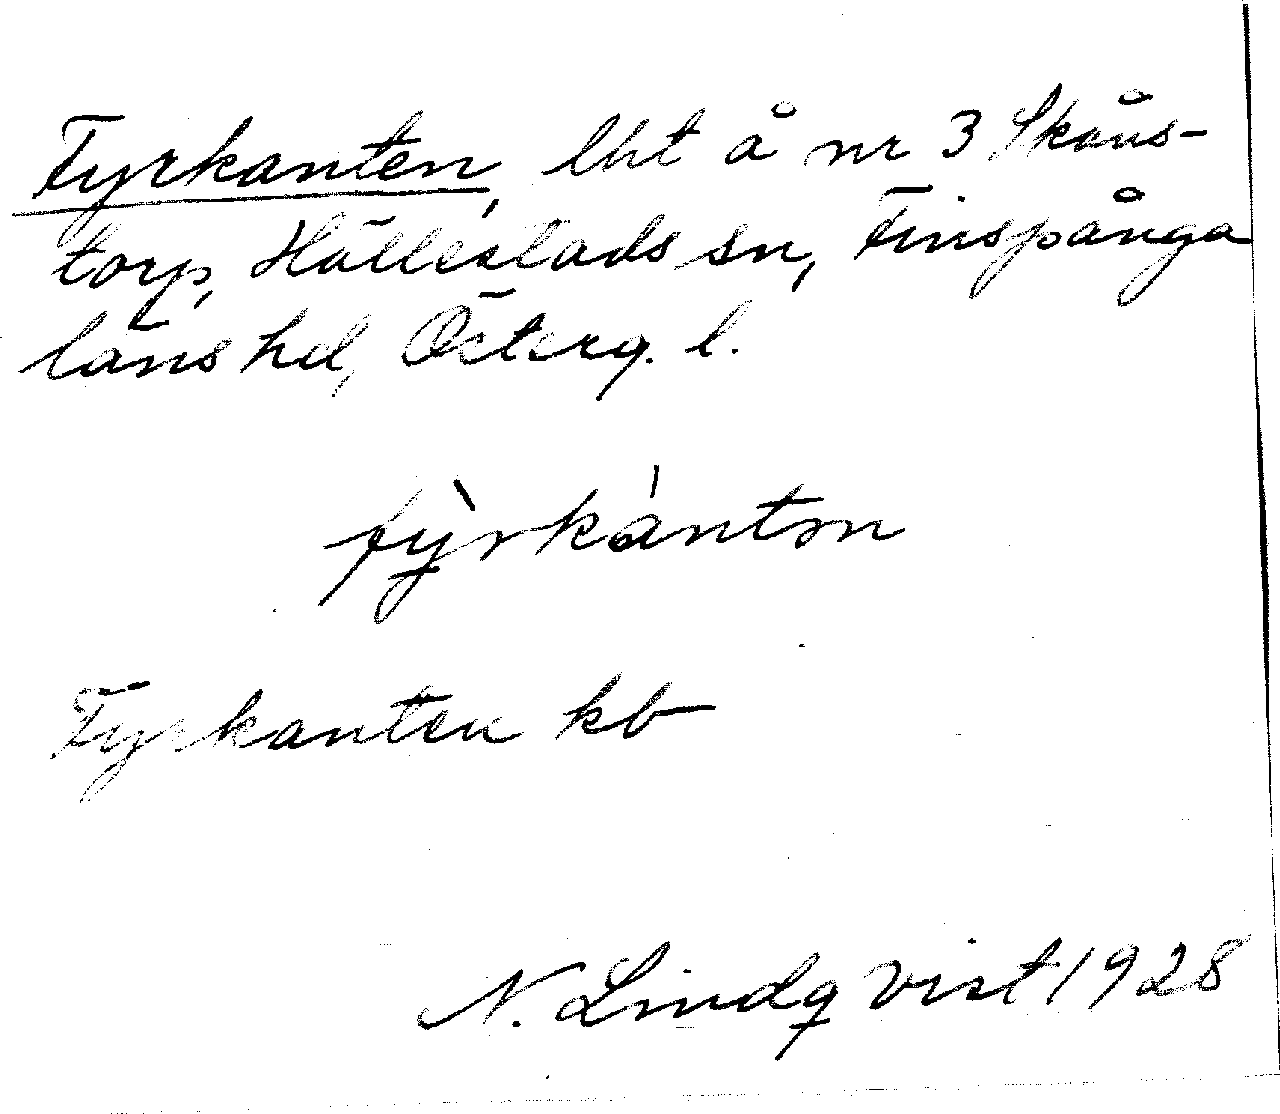 Fyrkanten, lht å nr 3 Skåns-
torp, Hällestads sn, Finspånga
läns hd, Österg. l.
fỳrkántən
Fyrkanten kb
N. Lindqvist 1928